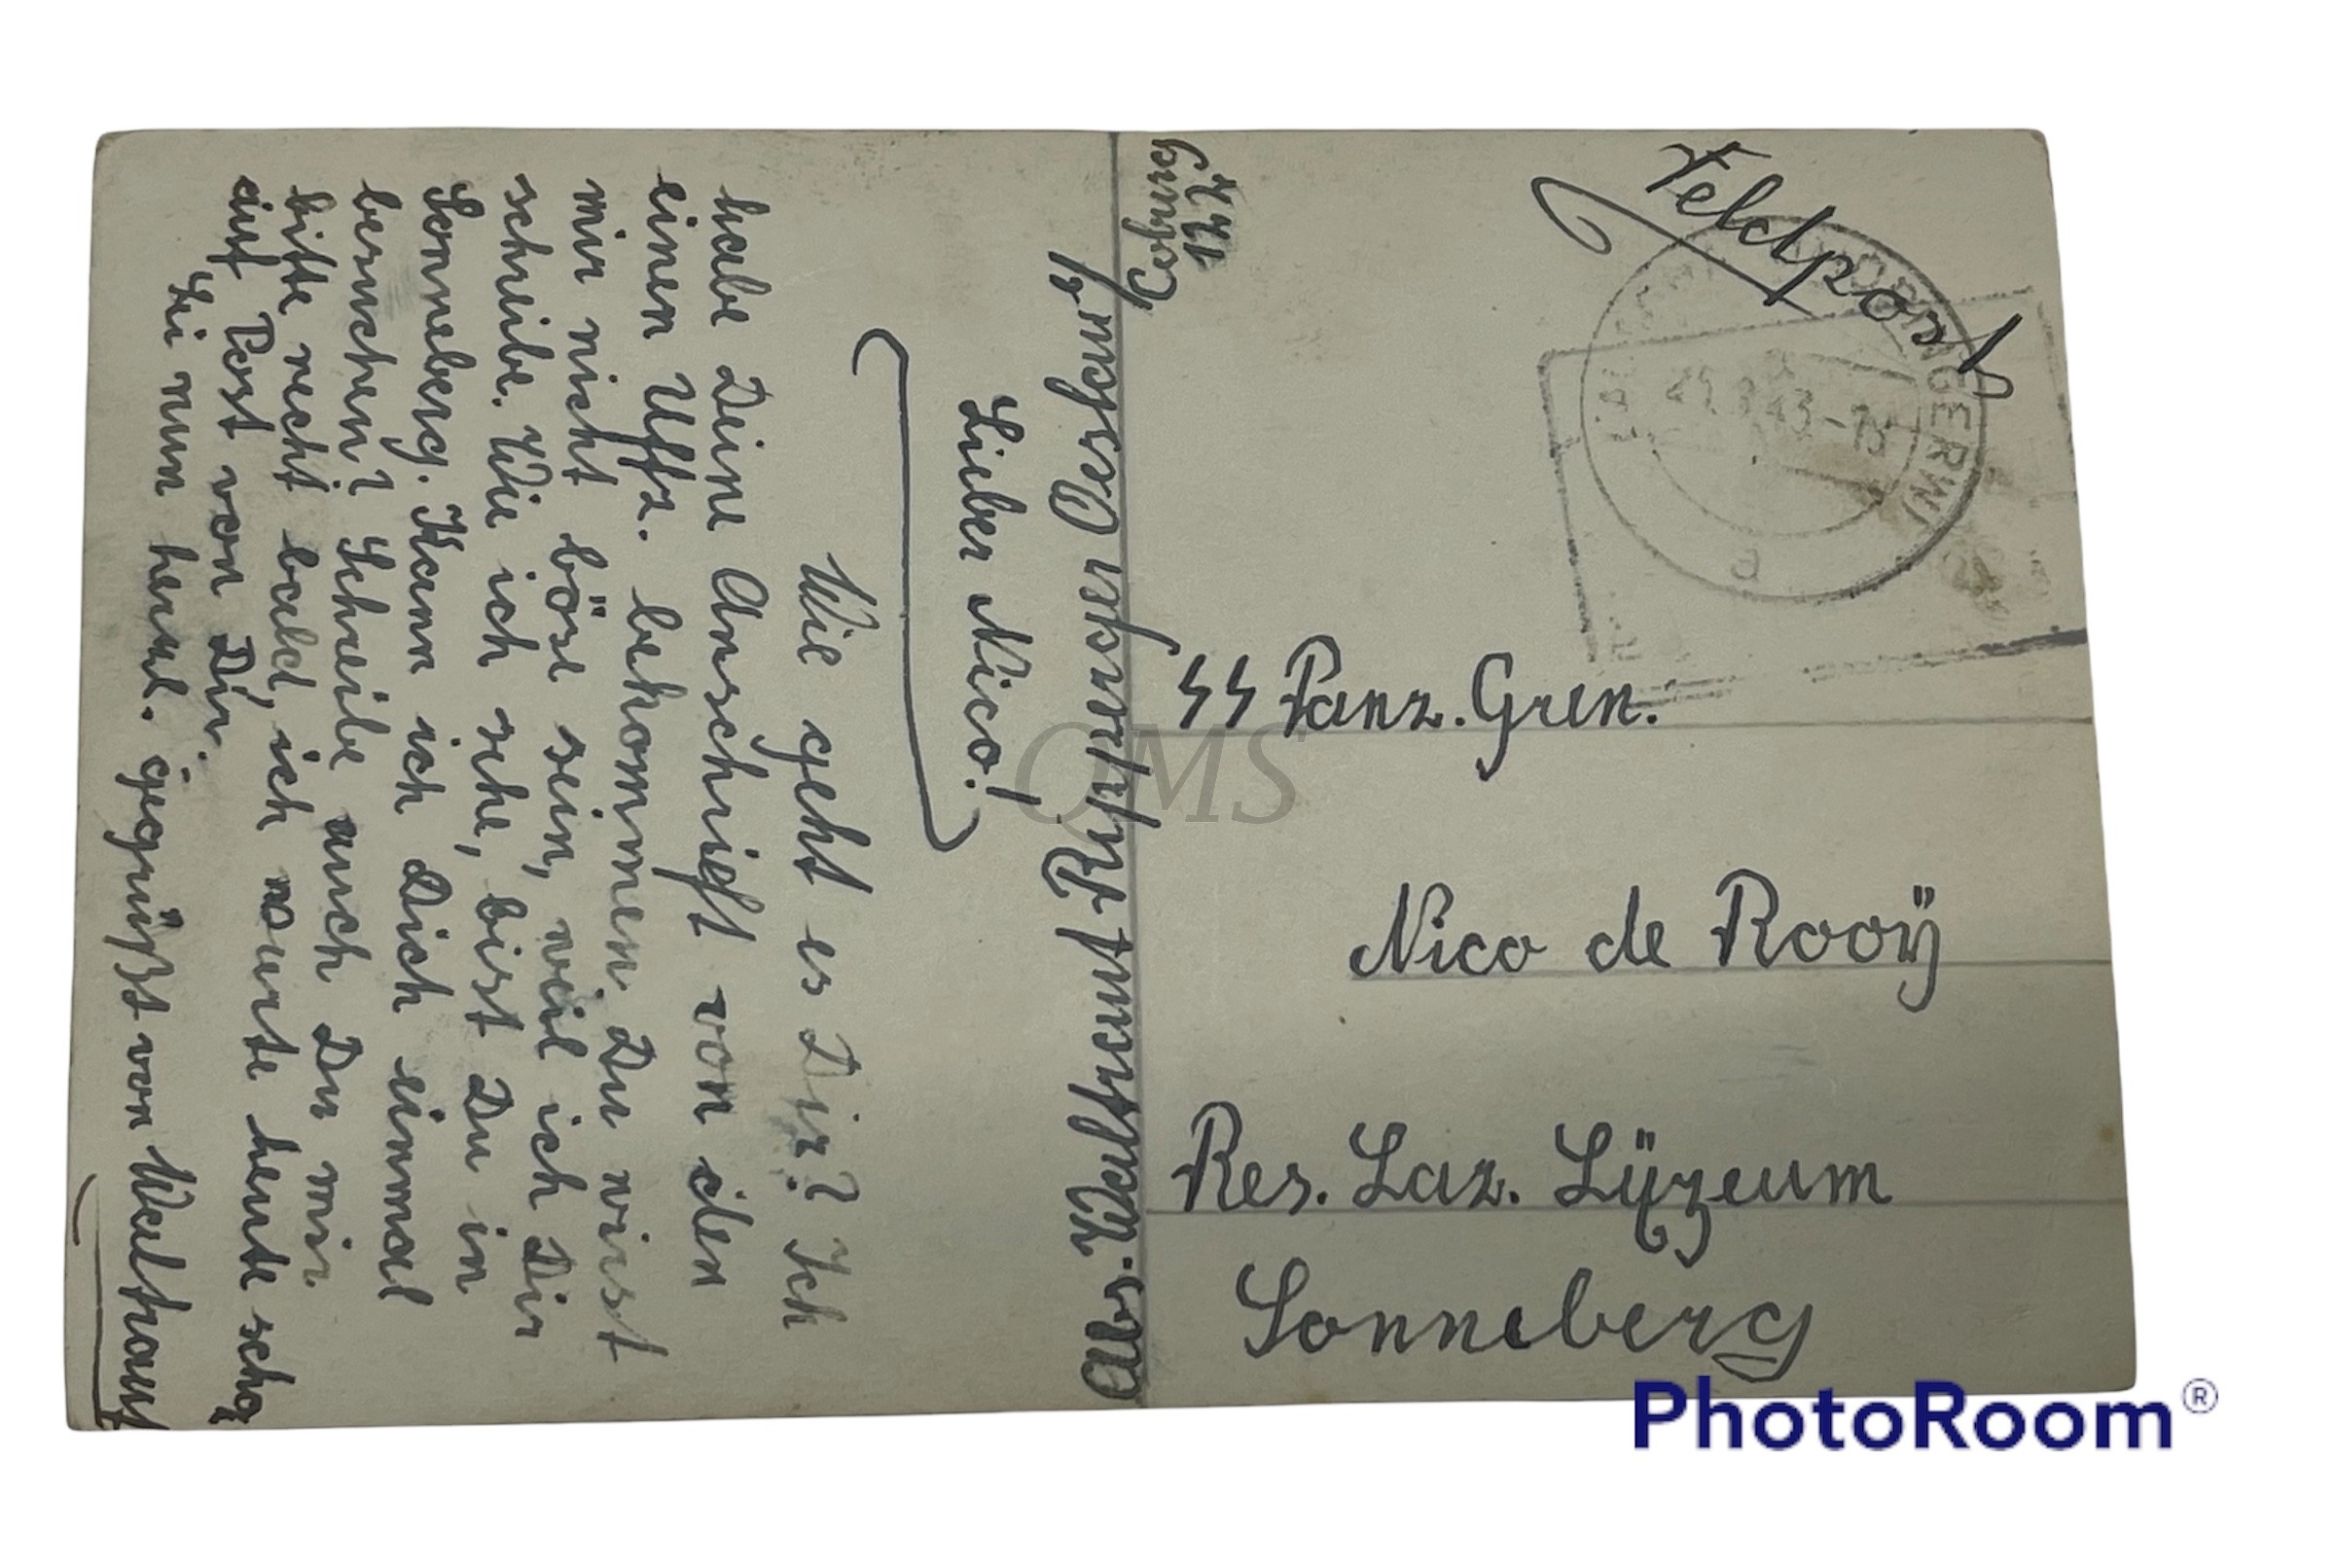 Feldpost
SS Panz. Gren.
Nico de Rooÿ
Res. Laz. Lÿzeum
Sonneberg
Abs. Waltraut
Coburg
Lieber Nico!
Wie geht es Dir? Ich
habe Deine Anschrift von den
einen Uffz. bekommen. Du wirst
mir nicht böse sein, weil ich Dir
schreibe. Wie ich sehe, bist Du in
Sonneberg. Kann ich Dich einmal
besuchen? Schreibe auch Du mir
bitte recht bald, ich warte heute schon
auf Post von Dir.
Sei nun herzl. gegrüßt von Waltraut
QMS
PhotoRoom®